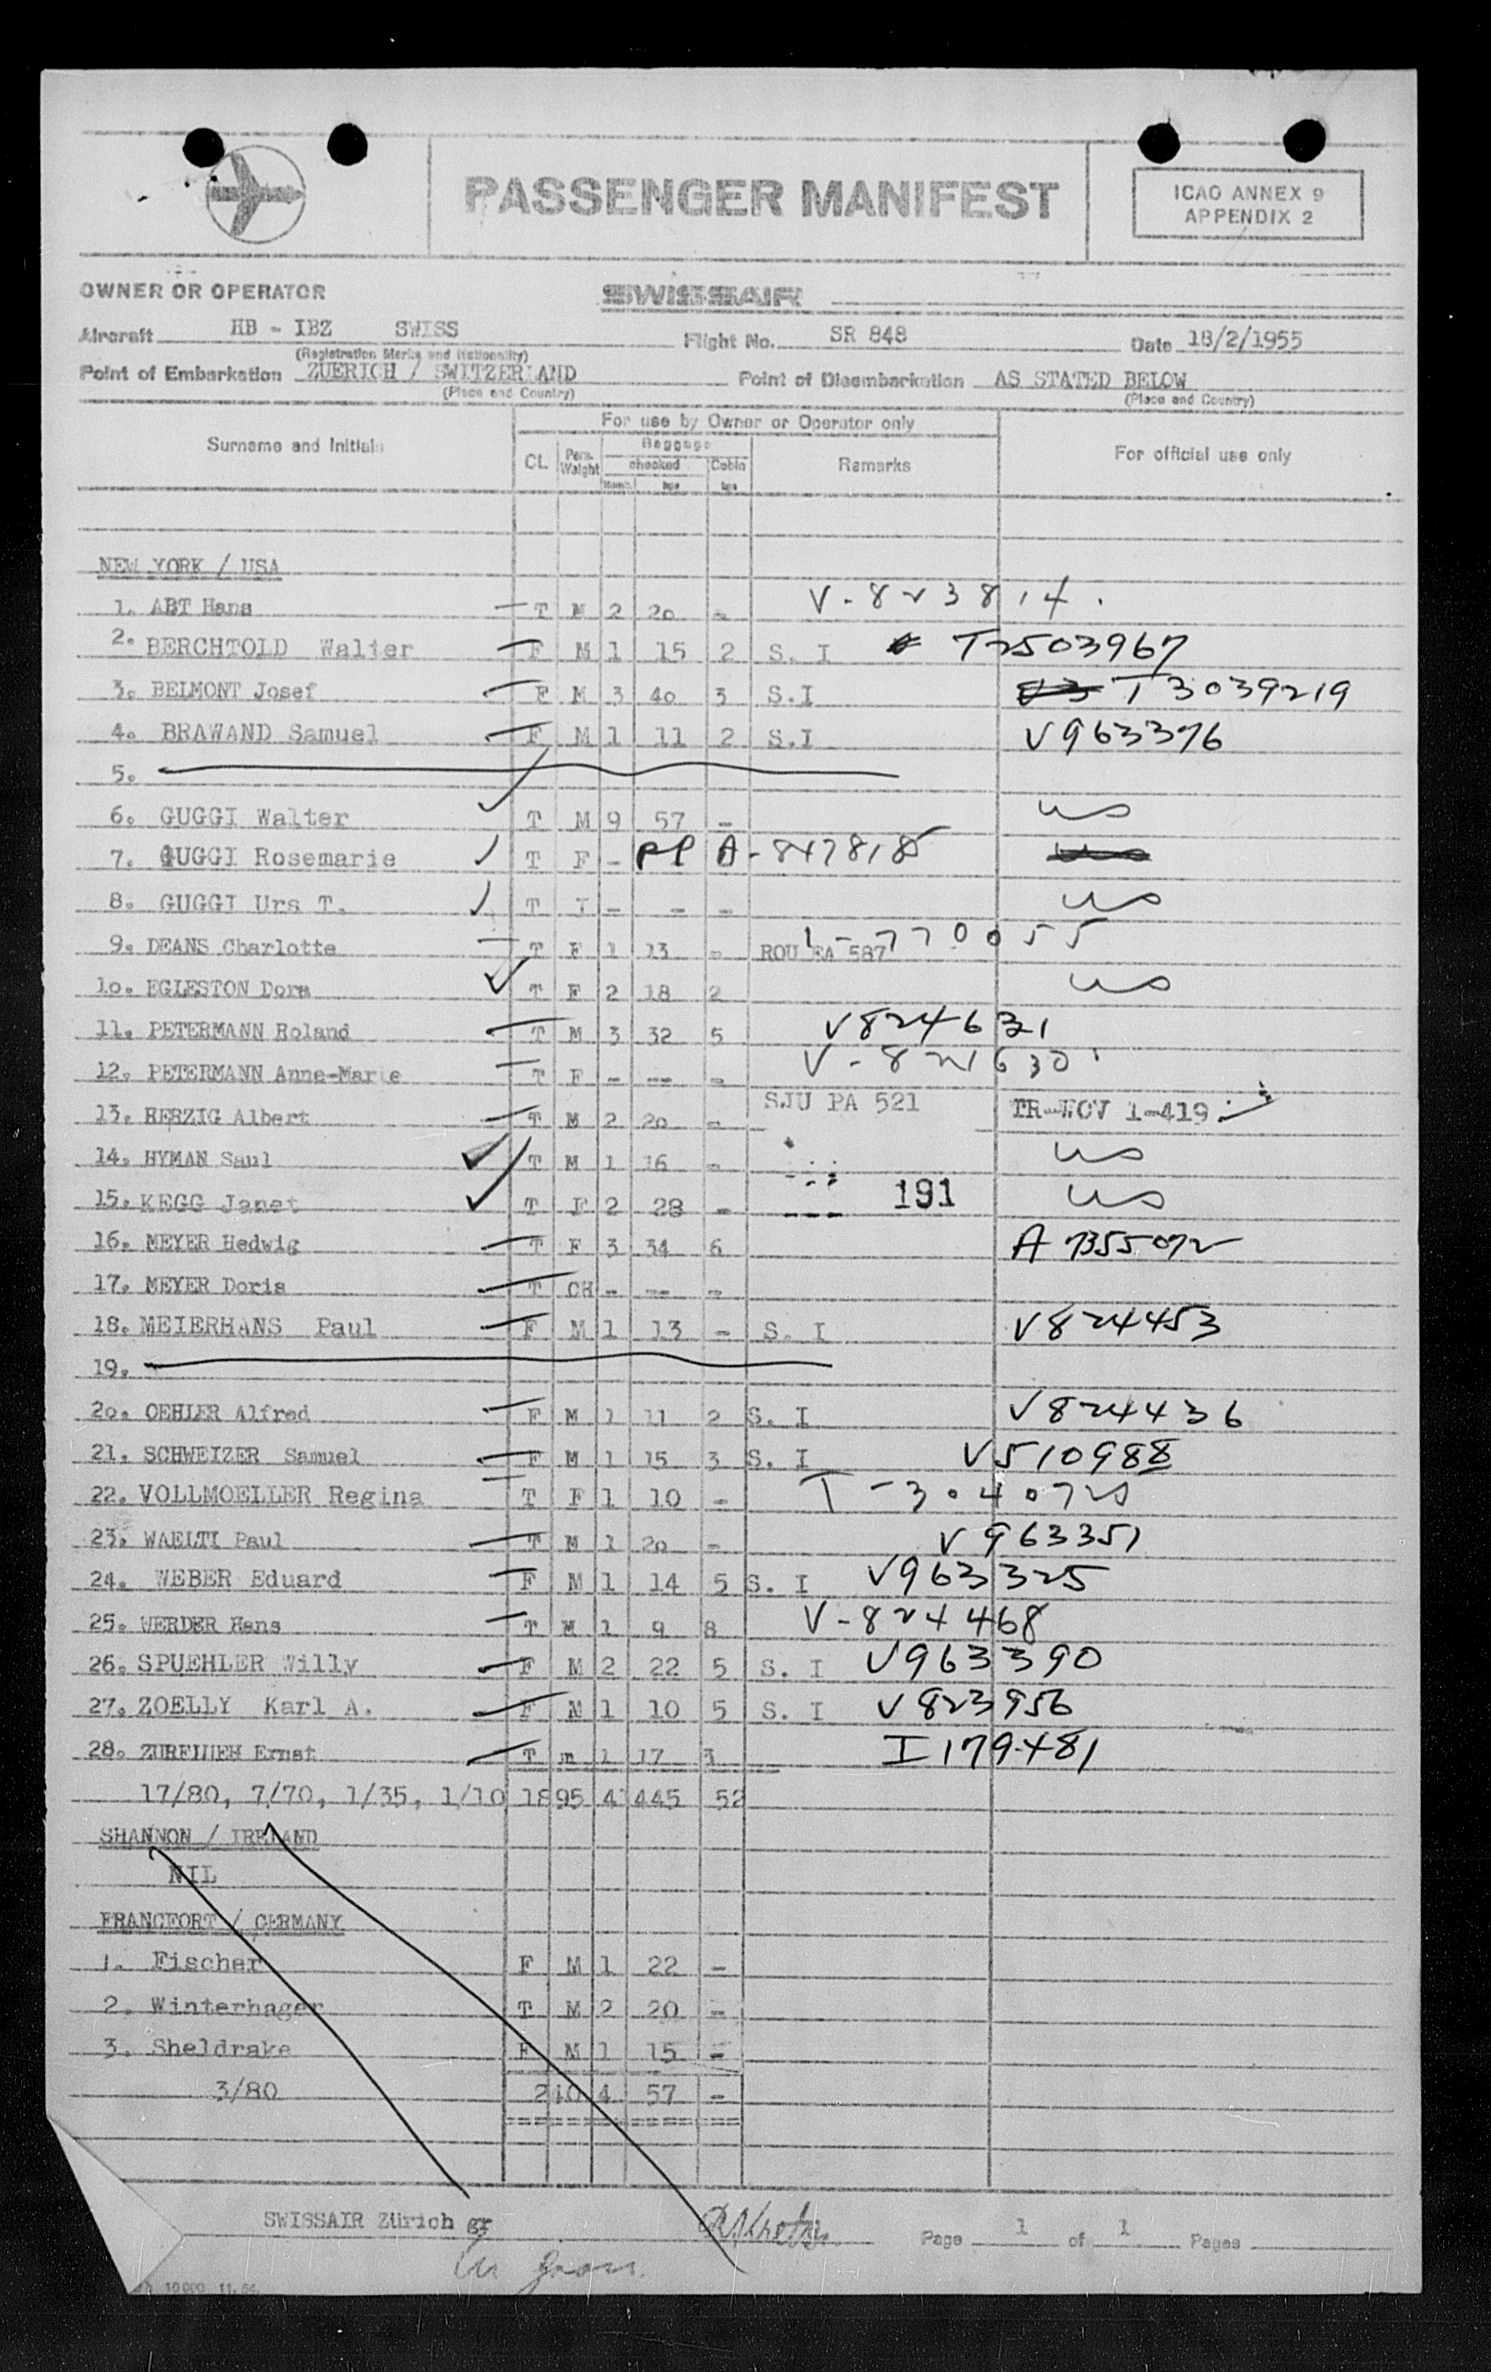 PASSENGER MANIFEST
ICAO ANNEX 9
APPENDIX 2
OWNER OR OPERATOR SWISSAIR
Aircraft HB - IBZ SWISS Flight No. SR 848 Date 18/2/1955
(Registration Marks and Nationality)
Point of Embarkation ZUERICH / SWITZERLAND Point of Disembarkation AS STATED BELOW
(Place and Country) (Place and Country)
For use by Owner or Operator only
Surname and Initials CL. Pers. Weight Baggage checked Numb. kgs Cabin kgs Remarks For official use only
NEW YORK / USA
1. ABT Hans T M 2 20 - V-823814.
2. BERCHTOLD Walter F M 1 15 2 S. I T2503967
3. BELMONT Josef F M 3 40 3 S.I T3039219
4. BRAWAND Samuel F M 1 11 2 S.I V963376
5.
6. GUGGI Walter T M 9 57 - US
7. GUGGI Rosemarie T F - PP A-8478185
8. GUGGI Urs T. T I - - - US
9. DEANS Charlotte T F 1 13 - ROU EA 587 I-770055
10. EGLESTON Dora T F 2 18 2 US
11. PETERMANN Roland T M 3 32 5 V824631
12. PETERMANN Anne-Marie T F - -- - V-821630
13. HERZIG Albert T M 2 20 - SJU PA 521 TR-WOV 1-419
14. HYMAN Saul T M 1 16 - US
15. KEGG Janet T F 2 28 - 191 US
16. MEYER Hedwig T F 3 34 6 A 7355072
17. MEYER Doris T CH - -- -
18. MEIERHANS Paul F M 1 13 - S. I V824453
19.
20. OEHLER Alfred F M 1 11 2 S. I V824436
21. SCHWEIZER Samuel F M 1 15 3 S. I V510988
22. VOLLMOELLER Regina T F 1 10 - T-304072
23. WAELTI Paul T M 1 20 - V963351
24. WEBER Eduard F M 1 14 5 S. I V963325
25. WERDER Hans T M 1 9 8 V-824468
26. SPUEHLER Willy F M 2 22 5 S. I V963390
27. ZOELLY Karl A. F M 1 10 5 S. I V823956
28. Ernst T m 1 17 3 I179481
17/80, 7/70, 1/35, 1/10 1895 41 445 52
SHANNON / IRELAND
NIL
FRANCFORT / GERMANY
1. Fischer F M 1 22 -
2. Winterhager T M 2 20 -
3. Sheldrake F M 1 15 -
3/80 240 4 57 -
SWISSAIR Zürich gr
Page 1 of 1 Pages
10 000 11.54.